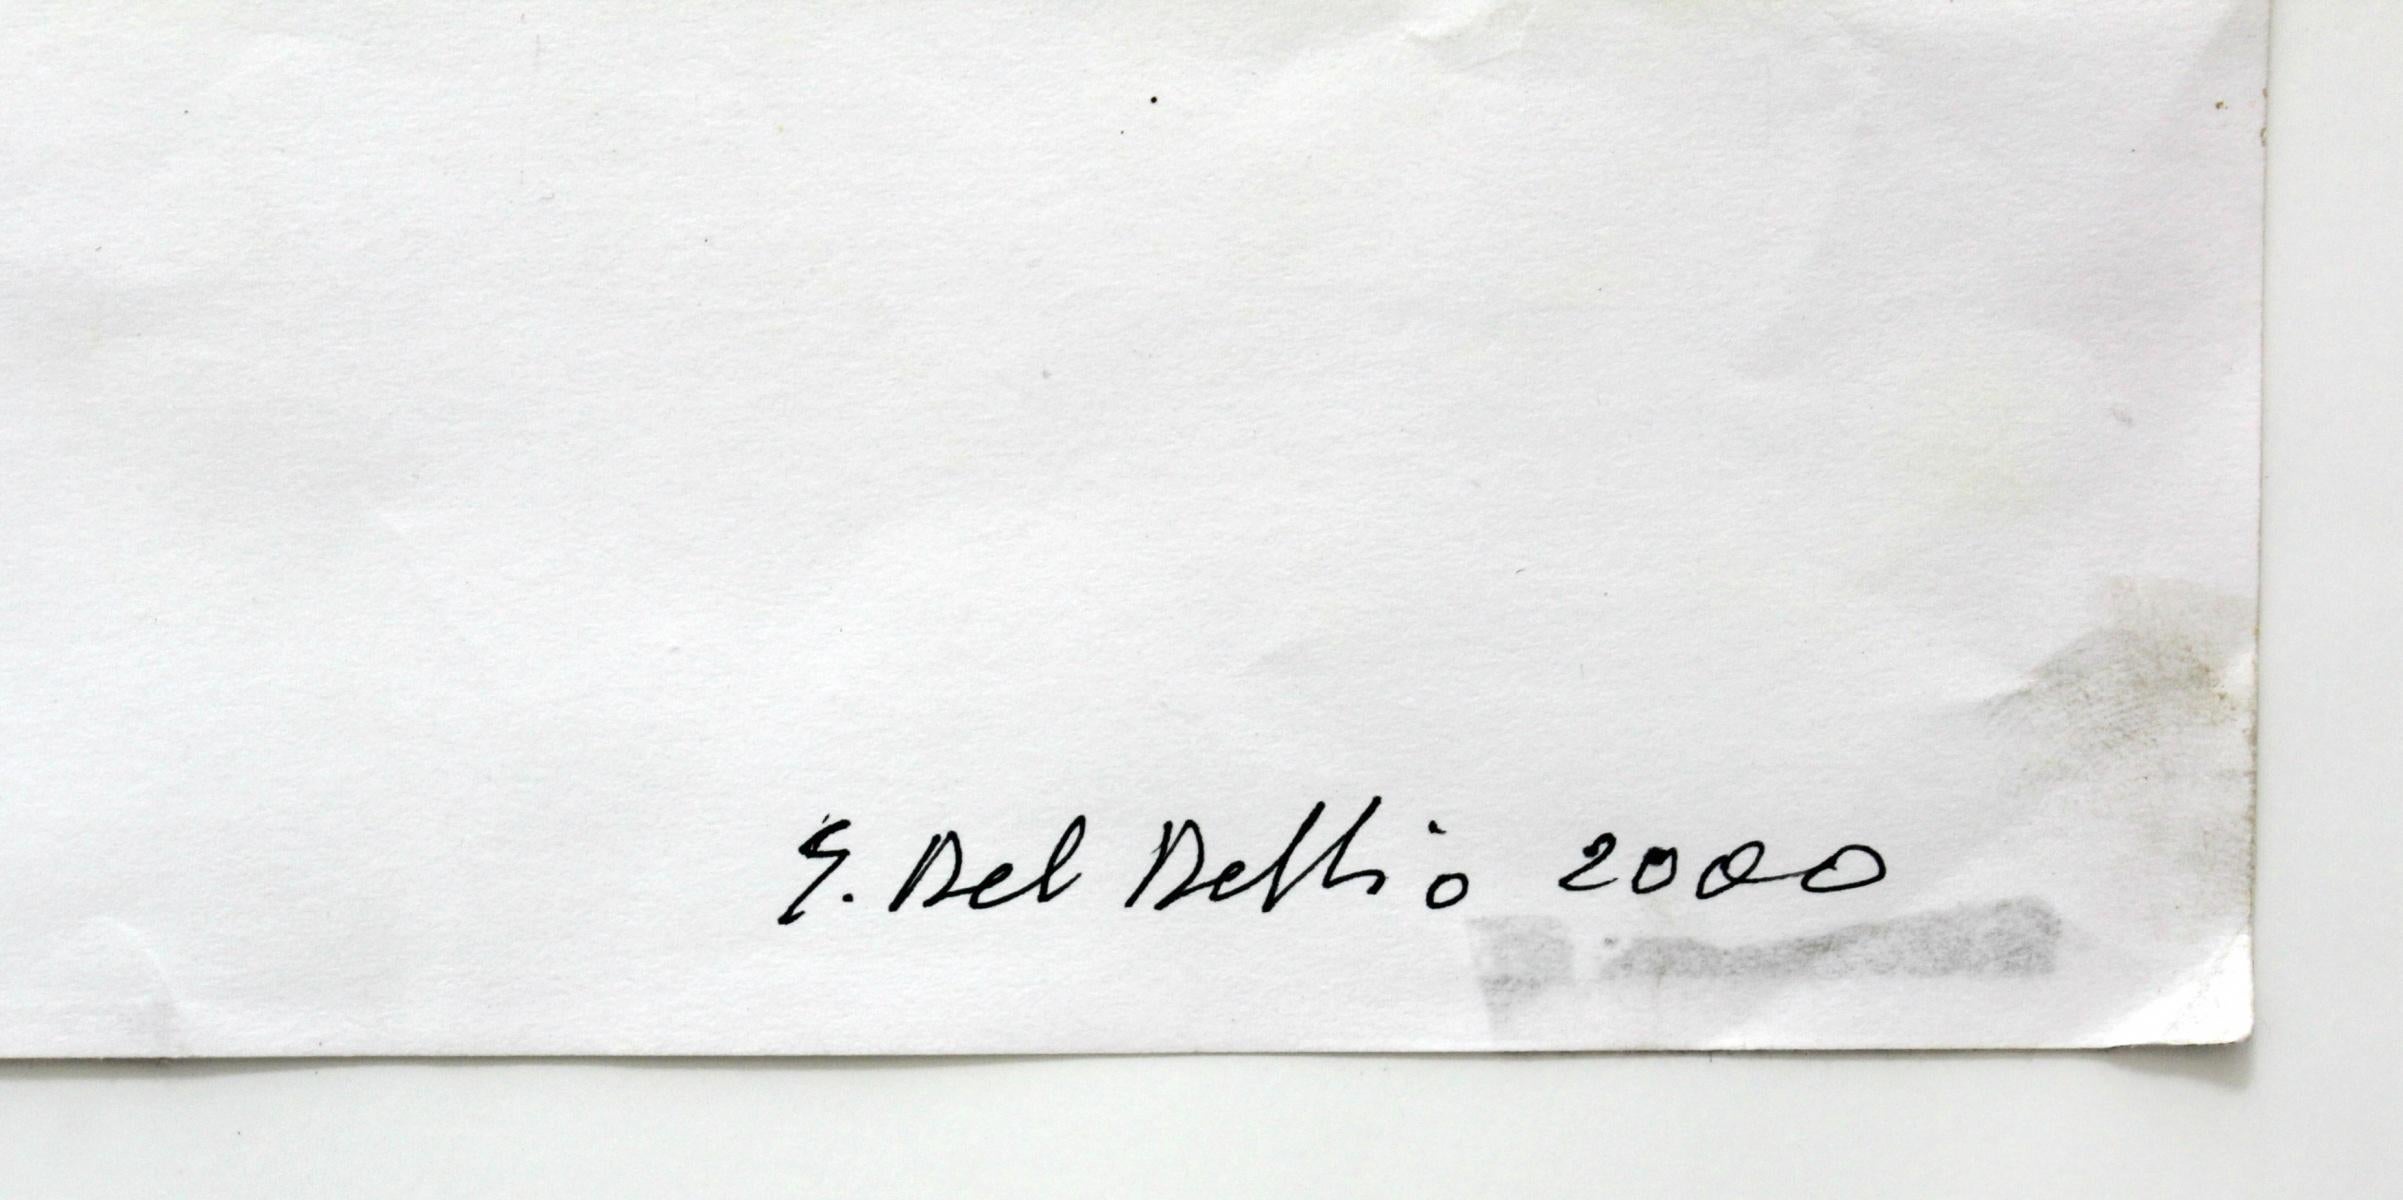 S. Del Debbio 2000